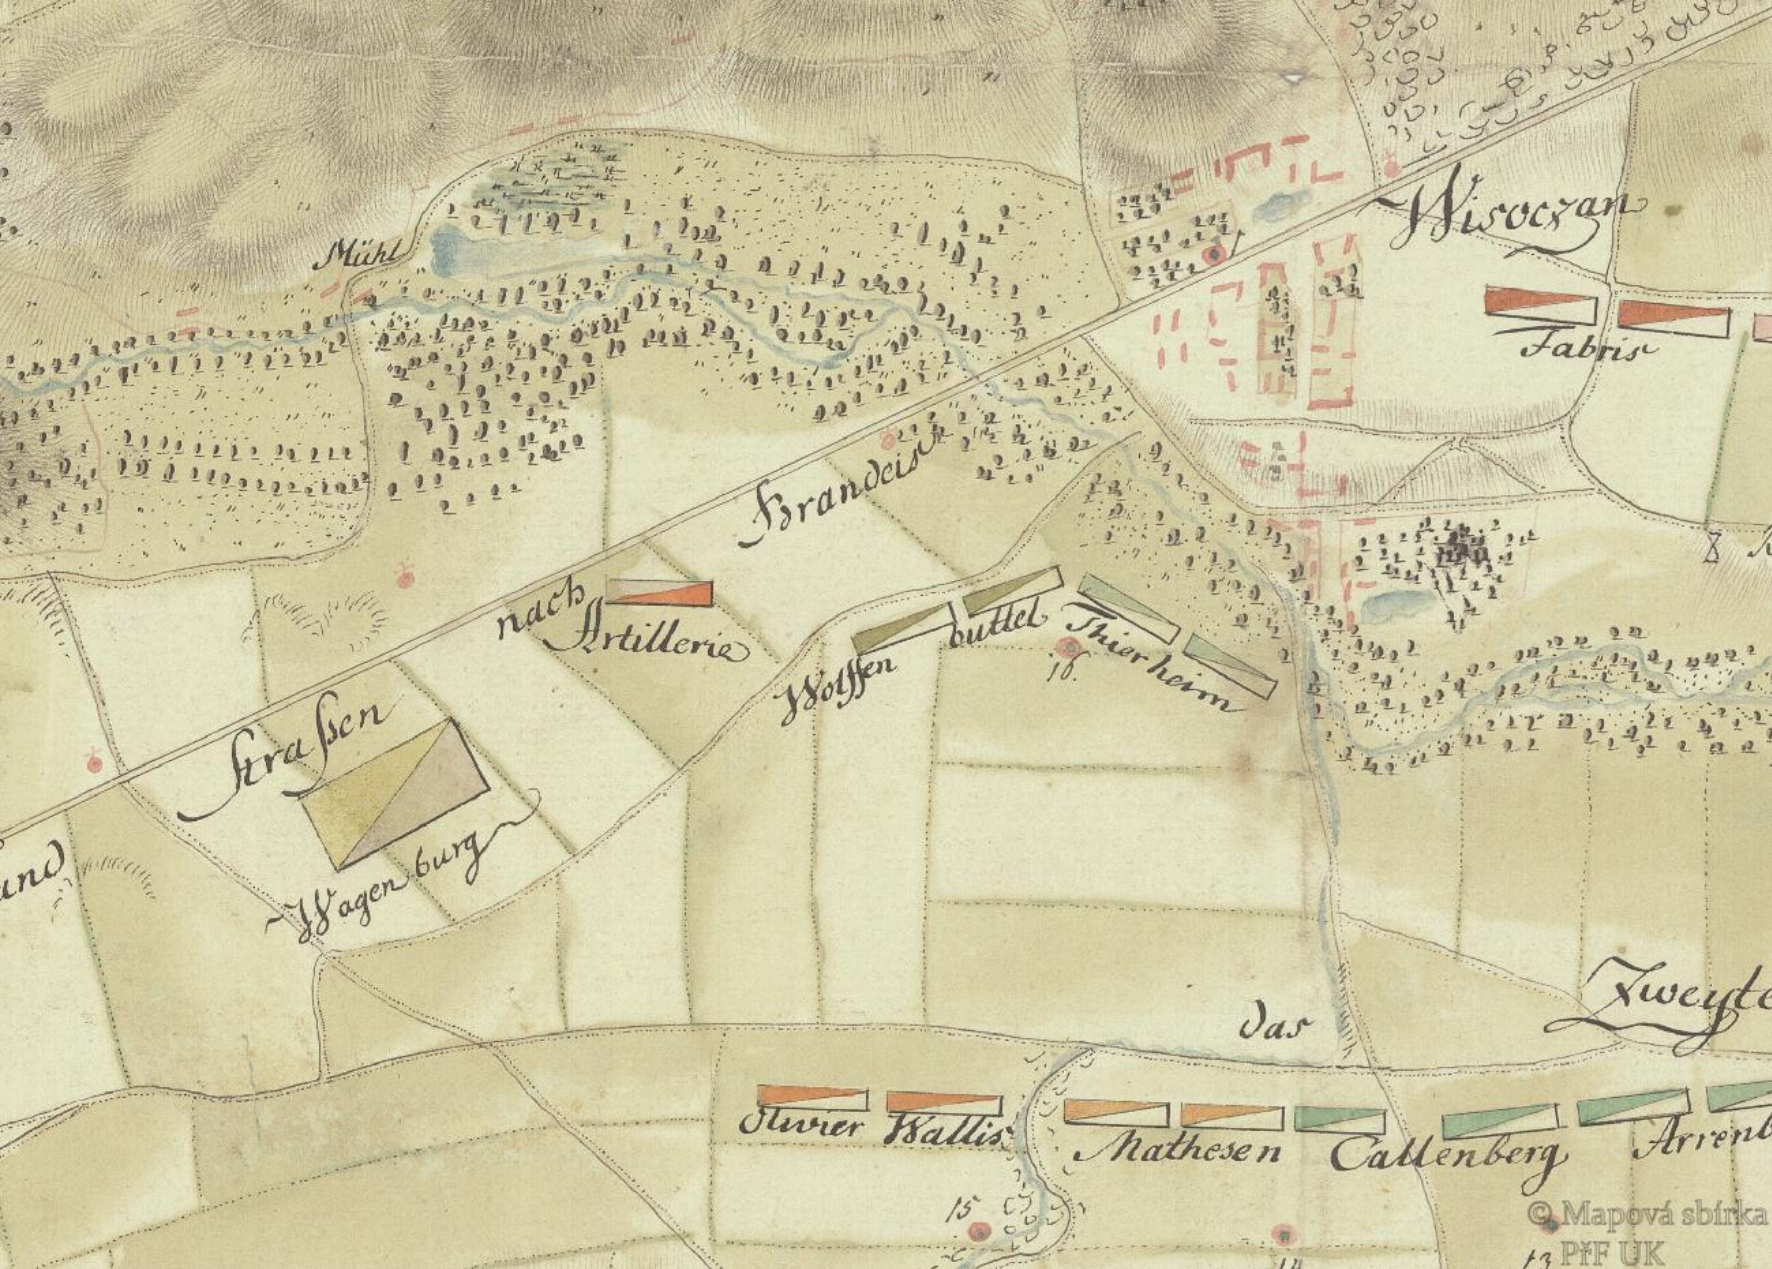 Wisoczan
Mühl
Fabris
Strassen nach Brandeis
Artillerie
Wolffen buttel
Thierheim
16.
Wagenburg
und
Zweyte
das
Olivier
Wallis
Mathesen
Callenberg
Arrenb
15
14
13
© Mapová sbírka
PřF UK